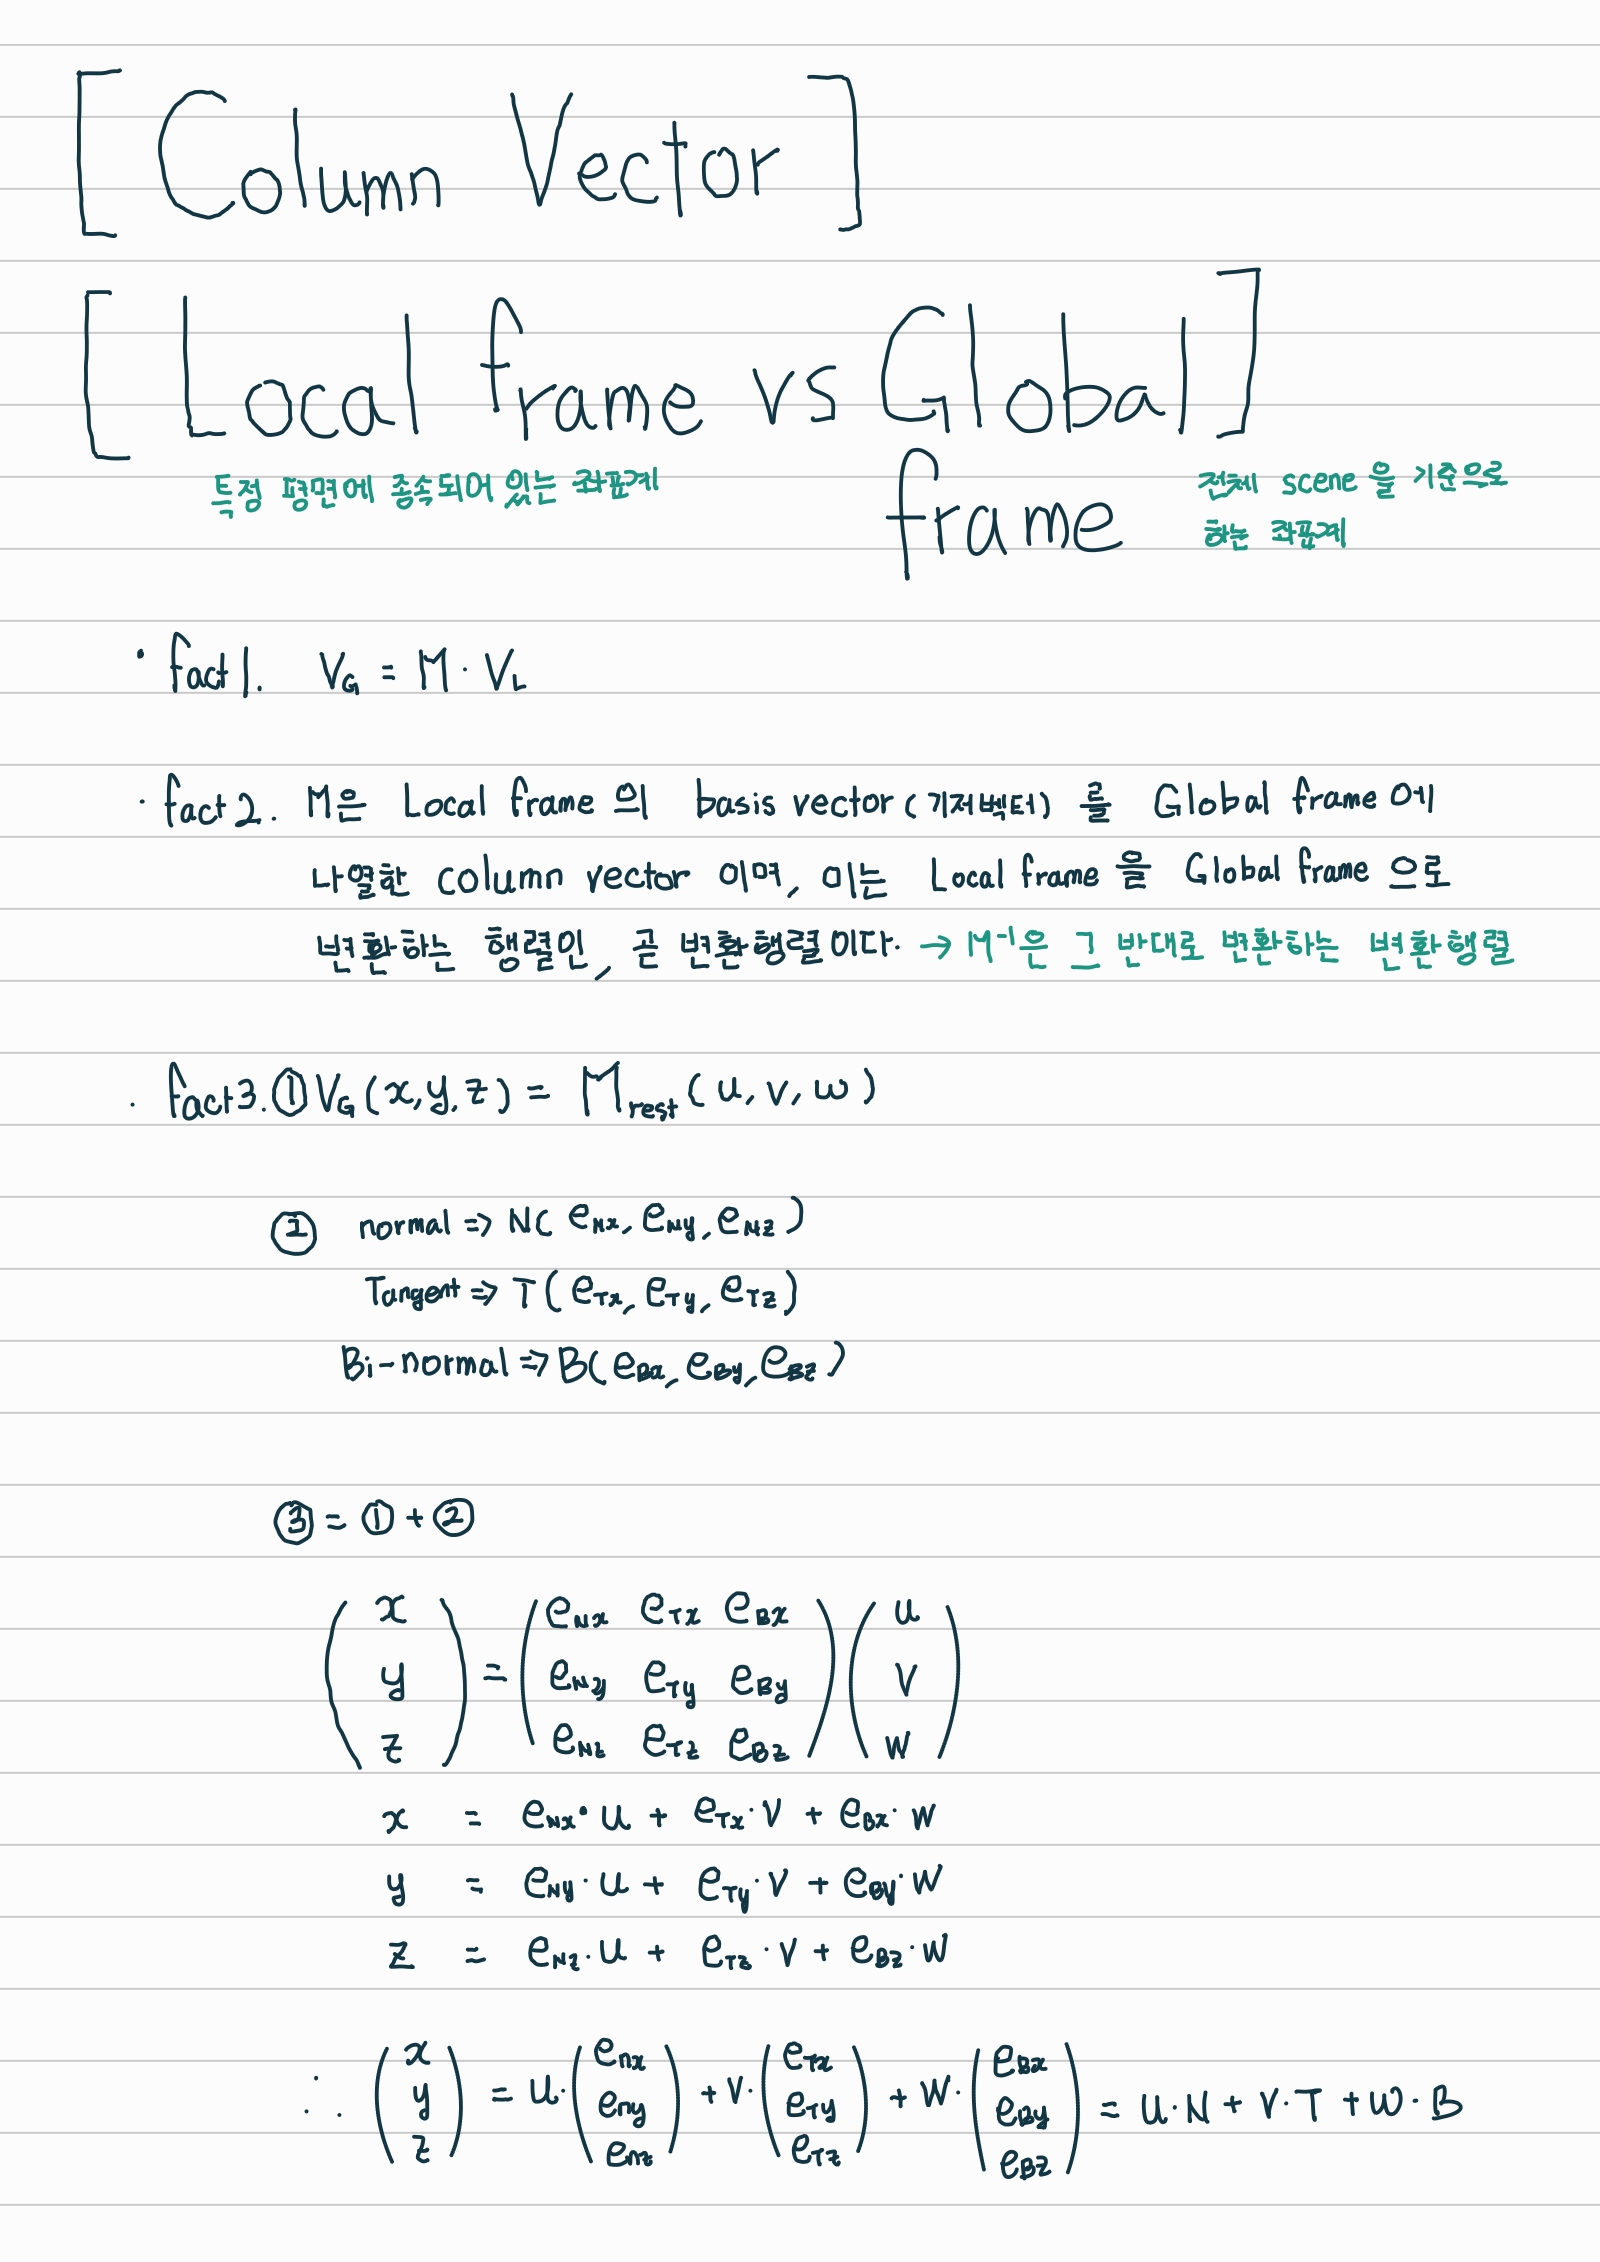 [ Column Vector ]
[ Local frame vs Global ]
frame
특정 평면에 종속되어 있는 좌표계
전체 scene을 기준으로
하는 좌표계
· fact 1. V_G = M · V_L
· fact 2. M은 Local frame의 basis vector (기저벡터) 를 Global frame에
나열한 column vector 이며, 이는 Local frame을 Global frame으로
변환하는 행렬인, 곧 변환행렬이다. → M⁻¹은 그 반대로 변환하는 변환행렬
· fact 3. ① V_G (x, y, z) = M_rest (u, v, w)
② normal => N( e_Nx, e_Ny, e_Nz )
Tangent => T( e_Tx, e_Ty, e_Tz )
Bi-normal => B( e_Bx, e_By, e_Bz )
③ = ① + ②
( x ) = ( e_Nx e_Tx e_Bx ) ( u )
( y ) ( e_Ny e_Ty e_By ) ( v )
( z ) ( e_Nz e_Tz e_Bz ) ( w )
x = e_Nx · u + e_Tx · v + e_Bx · w
y = e_Ny · u + e_Ty · v + e_By · w
z = e_Nz · u + e_Tz · v + e_Bz · w
∴ ( x y z ) = u · ( e_nx e_ny e_nz ) + v · ( e_Tx e_Ty e_Tz ) + w · ( e_Bx e_By e_Bz ) = u · N + v · T + w · B